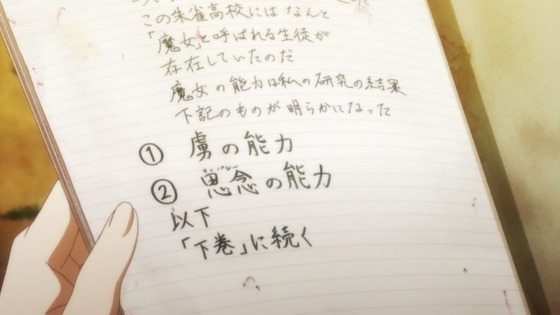 この朱雀高校には なんと
「魔女」と呼ばれる生徒が
存在していたのだ
魔女の能力は私の研究の結果
下記のものが明らかになった
① 虜の能力
② 思念の能力
以下
「下巻」に続く